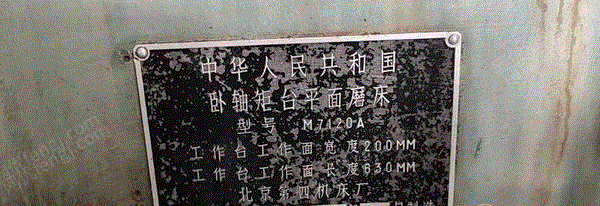 中华人民共和国
卧轴矩台平面磨床
型号 M7120A
工作台工作面宽度200MM
工作台工作面长度630MM
北京第四机床厂